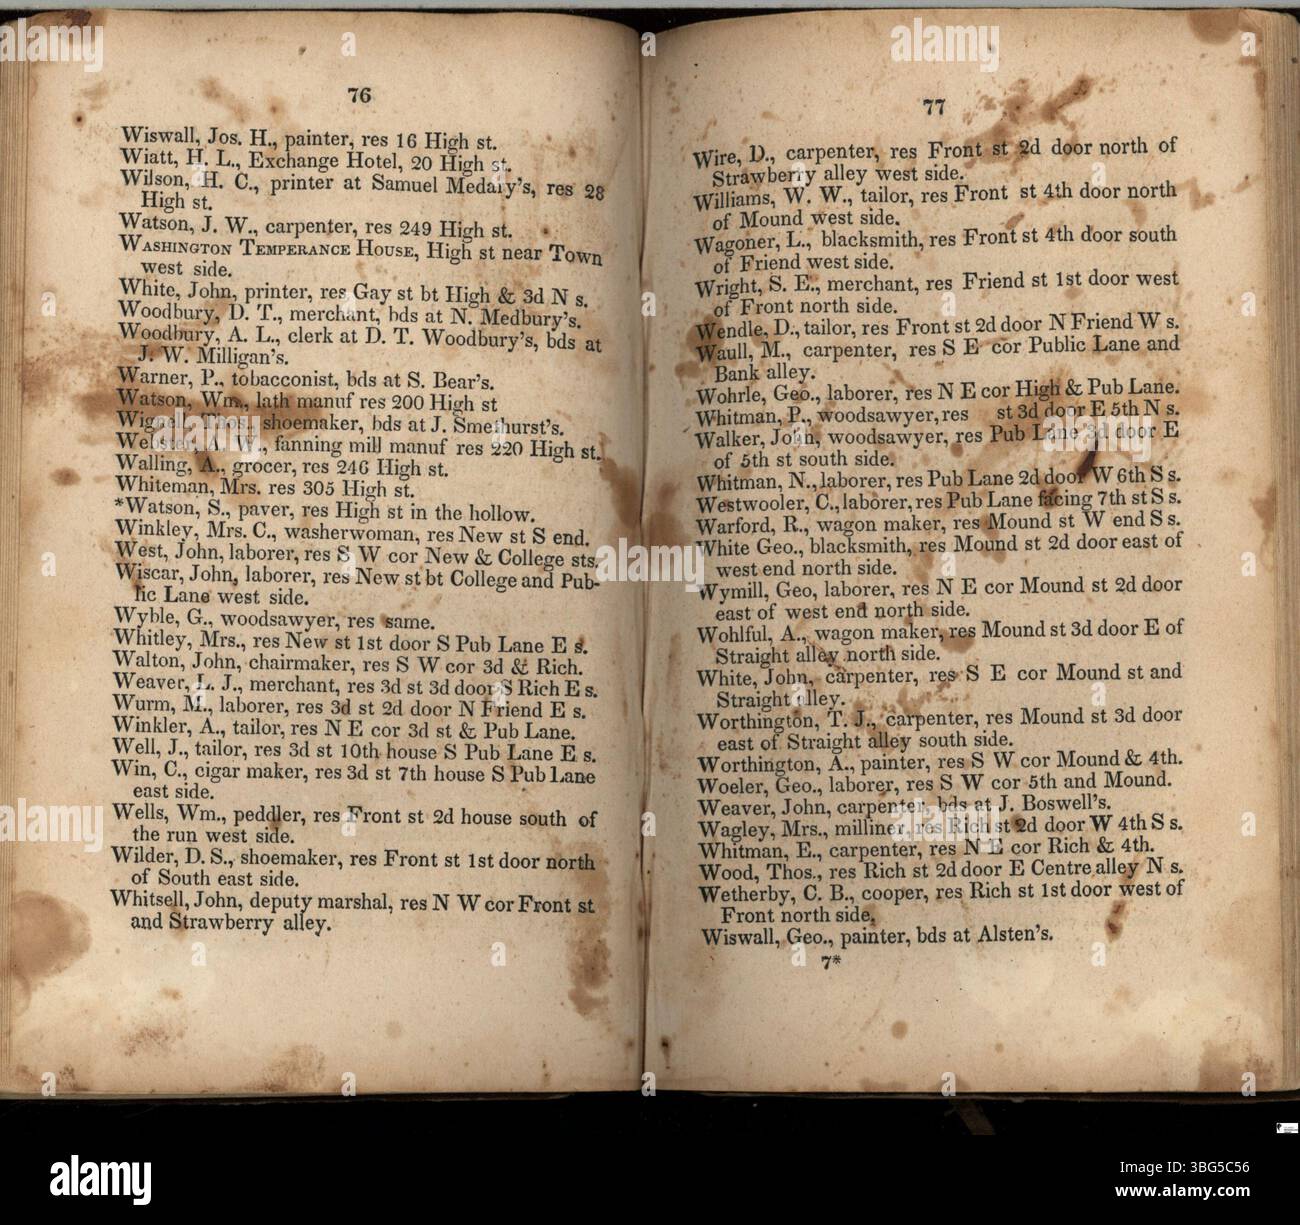 76
Wiswall, Jos. H., painter, res 16 High st.
Wiatt, H. L., Exchange Hotel, 20 High st.
Wilson, H. C., printer at Samuel Medary's, res 28
High st.
Watson, J. W., carpenter, res 249 High st.
WASHINGTON TEMPERANCE HOUSE, High st near Town
west side.
White, John, printer, res Gay st bt High & 3d N s.
Woodbury, D. T., merchant, bds at N. Medbury's.
Woodbury, A. L., clerk at D. T. Woodbury's, bds at
J. W. Milligan's.
Warner, P., tobacconist, bds at S. Bear's.
Watson, Wm., lath manuf res 200 High st
Thos., shoemaker, bds at J. Smethurst's.
Webster, A. W., fanning mill manuf res 220 High st.
Walling, A., grocer, res 246 High st.
Whiteman, Mrs. res 305 High st.
*Watson, S., paver, res High st in the hollow.
Winkley, Mrs. C., washerwoman, res New st S end.
West, John, laborer, res S W cor New & College sts.
Wiscar, John, laborer, res New st bt College and Pub-
lic Lane west side.
Wyble, G., woodsawyer, res same.
Whitley, Mrs., res New st 1st door S Pub Lane E s.
Walton, John, chairmaker, res S W cor 3d & Rich.
Weaver, L. J., merchant, res 3d st 3d door S Rich E s.
Wurm, M., laborer, res 3d st 2d door N Friend E s.
Winkler, A., tailor, res N E cor 3d st & Pub Lane.
Well, J., tailor, res 3d st 10th house S Pub Lane E s.
Win, C., cigar maker, res 3d st 7th house S Pub Lane
east side.
Wells, Wm., peddler, res Front st 2d house south of
the run west side.
Wilder, D. S., shoemaker, res Front st 1st door north
of South east side.
Whitsell, John, deputy marshal, res N W cor Front st
and Strawberry alley.
77
Wire, D., carpenter, res Front st 2d door north of
Strawberry alley west side.
Williams, W. W., tailor, res Front st 4th door north
of Mound west side.
Wagoner, L., blacksmith, res Front st 4th door south
of Friend west side.
Wright, S. E., merchant, res Friend st 1st door west
of Front north side.
Wendle, D., tailor, res Front st 2d door N Friend W s.
Waull, M., carpenter, res S E cor Public Lane and
Bank alley.
Wohrle, Geo., laborer, res N E cor High & Pub Lane.
Whitman, P., woodsawyer, res st 3d door E 5th N s.
Walker, John, woodsawyer, res Pub Lane 3d door E
of 5th st south side.
Whitman, N., laborer, res Pub Lane 2d door W 6th S s.
Westwooler, C., laborer, res Pub Lane facing 7th st S s.
Warford, R., wagon maker, res Mound st W end S s.
White Geo., blacksmith, res Mound st 2d door east of
west end north side.
Wymill, Geo, laborer, res N E cor Mound st 2d door
east of west end north side.
Wohlful, A., wagon maker, res Mound st 3d door E of
Straight alley north side.
White, John, carpenter, res S E cor Mound st and
Straight alley.
Worthington, T. J., carpenter, res Mound st 3d door
east of Straight alley south side.
Worthington, A., painter, res S W cor Mound & 4th.
Woeler, Geo., laborer, res S W cor 5th and Mound.
Weaver, John, carpenter, bds at J. Boswell's.
Wagley, Mrs., milliner, res Rich st 2d door W 4th S s.
Whitman, E., carpenter, res N E cor Rich & 4th.
Wood, Thos., res Rich st 2d door E Centre alley N s.
Wetherby, C. B., cooper, res Rich st 1st door west of
Front north side.
Wiswall, Geo., painter, bds at Alsten's.
7*
alamy
Image ID: 3BG5C56
www.alamy.com